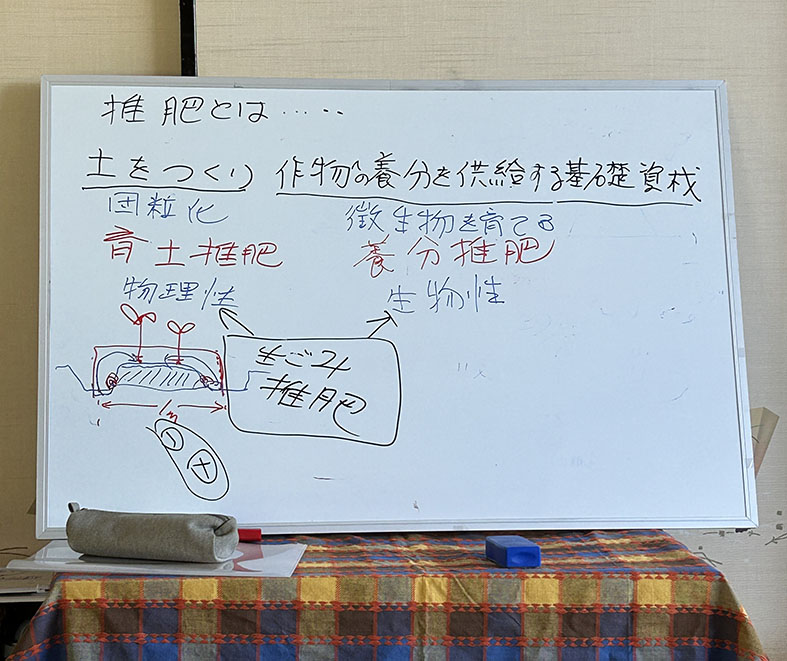 堆肥とは・・・・・
土をつくり 作物の養分を供給する基礎資材
団粒化 微生物を育てる
育土堆肥 養分堆肥
物理性 生物性
生ごみ
堆肥
1m
−
+